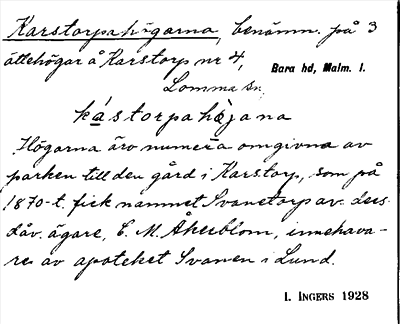 Karstorpahögarna, benämn. på 3
ättehögar å Karstorp nr 4,
Bara hd, Malm. l.
Lomma sn.
kástorpahøjana
Högarna äro numera omgivna av
parken till den gård i Karstorp, som på
1870-t. fick namnet Svanetorp av dess
dåv. ägare, E. M. Åkerblom, innehava-
re av apoteket Svanen i Lund.
I. INGERS 1928